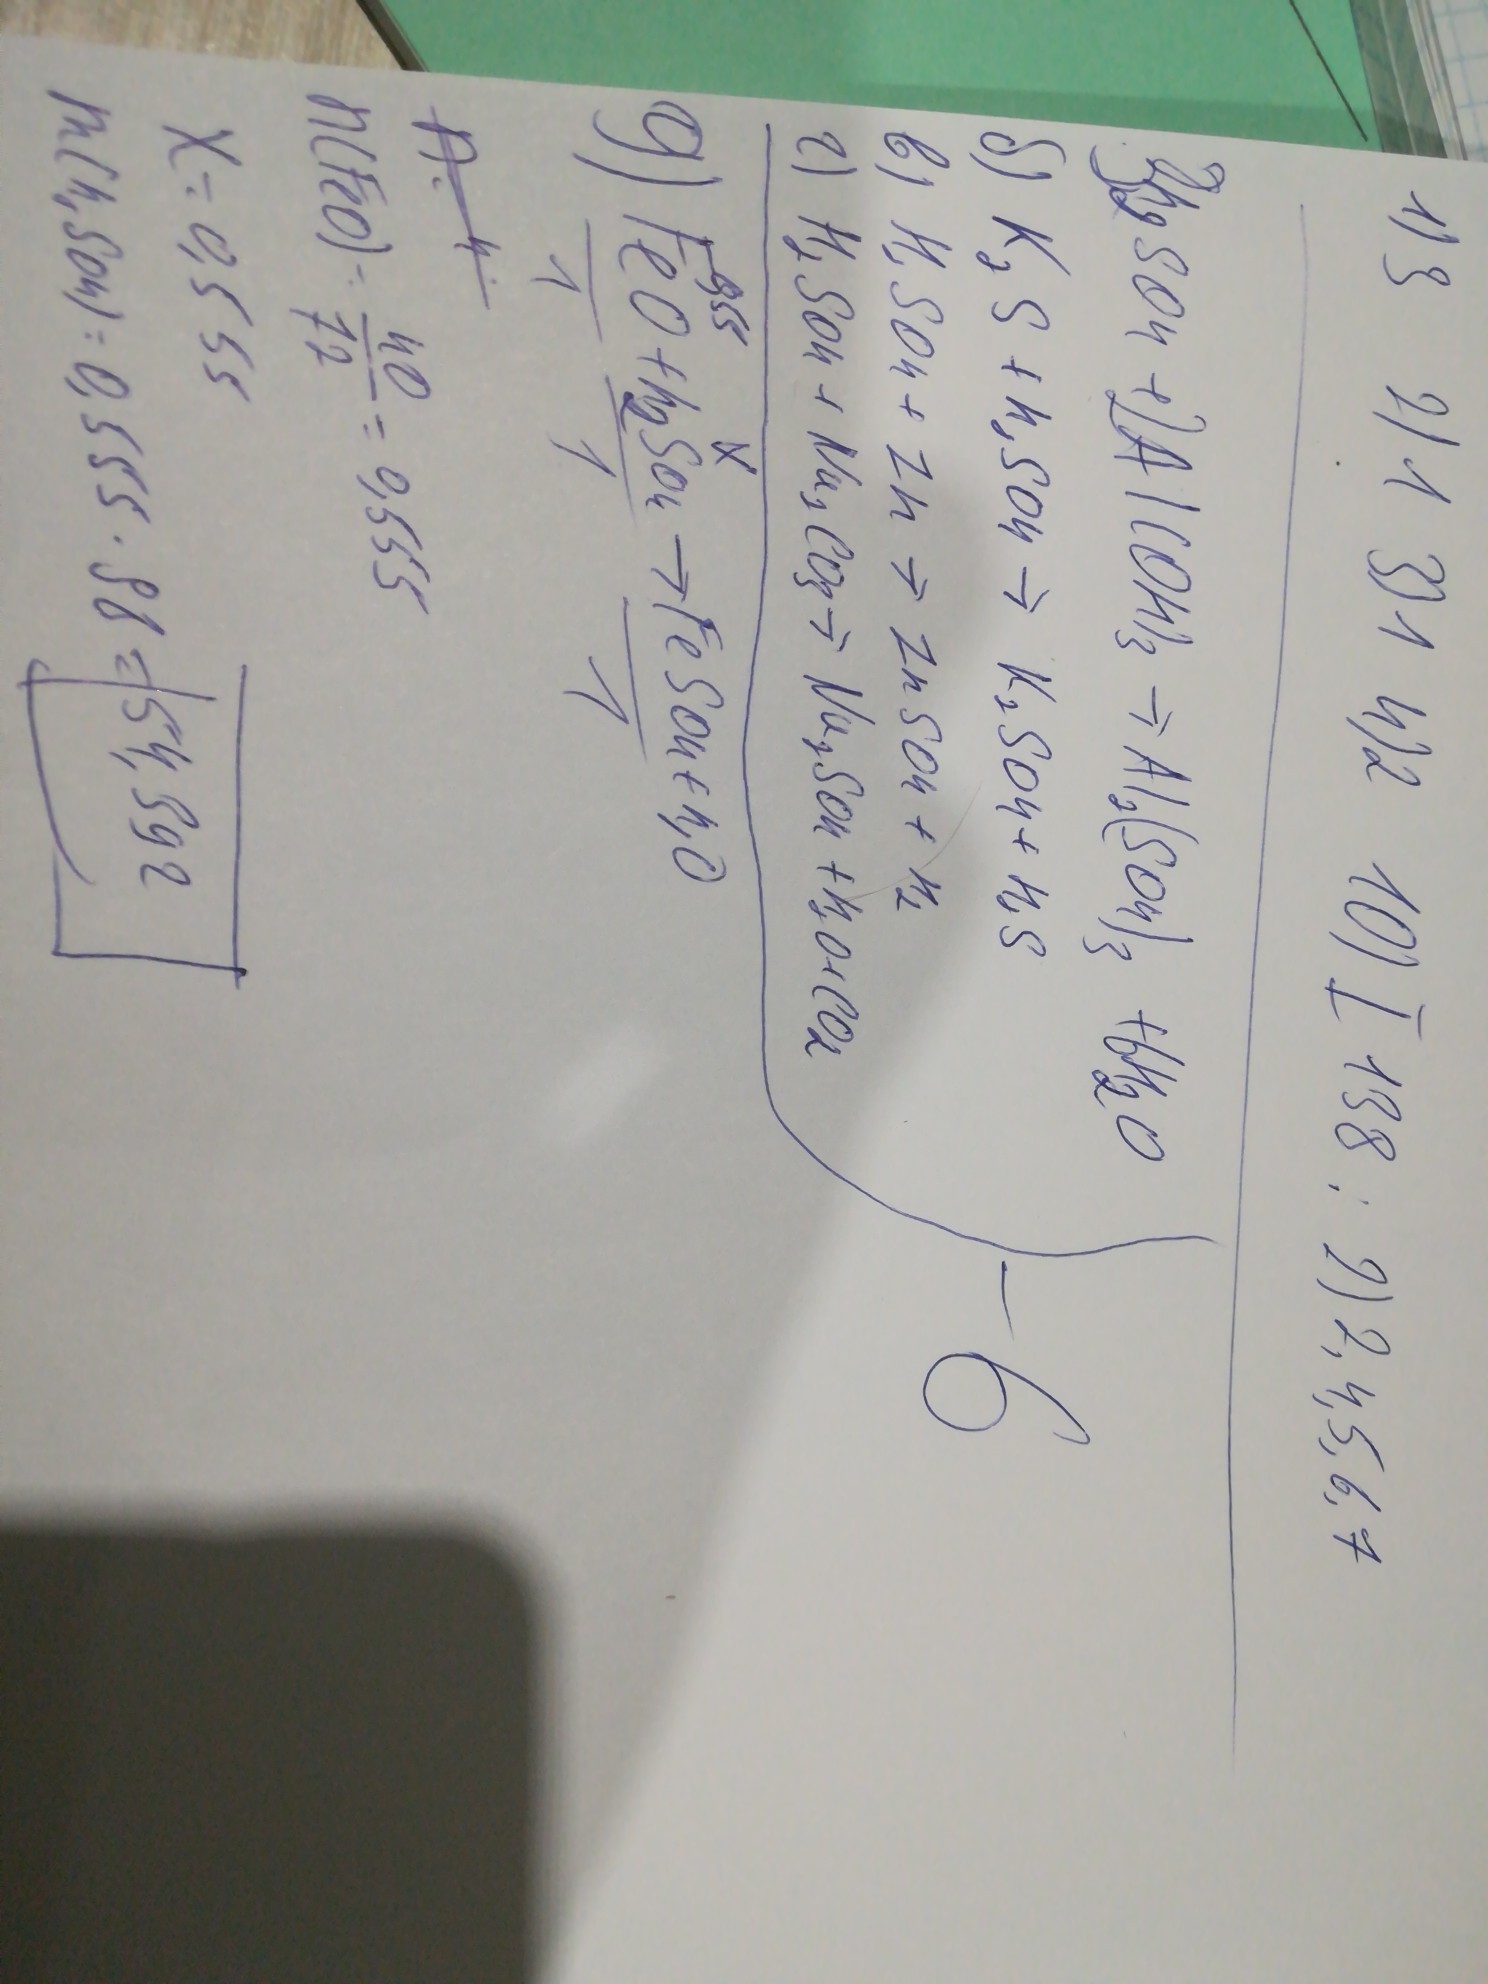 1) 3 2) 1 3) 1 4) 2 10) I 198 : 2) 2, 4, 5, 6, 7
3H2SO4 + 2Al(OH)3 → Al2(SO4)3 + 6H2O
б) K2S + H2SO4 → K2SO4 + H2S
в) H2SO4 + Zn → ZnSO4 + H2
г) H2SO4 + Na2CO3 → Na2SO4 + H2O + CO2
— 6
0,555 x
9) FeO + H2SO4 → FeSO4 + H2O
1 1 1
n(FeO) = 40/72 = 0,555
X = 0,555
m(H2SO4) = 0,555 · 98 = 54,39г